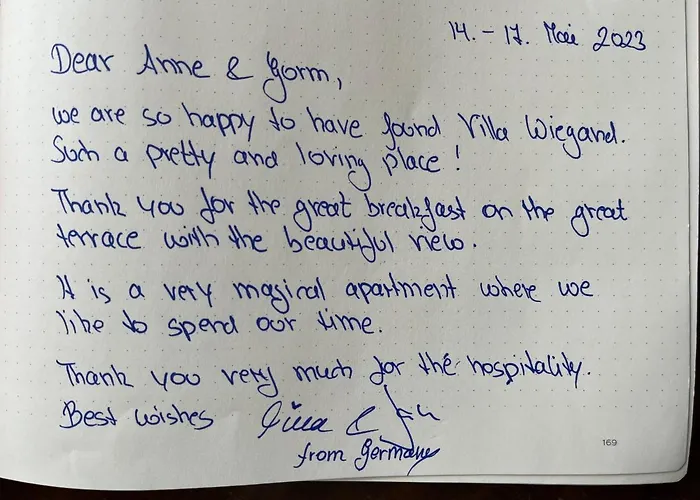 14. - 17. Mai 2023
Dear Anne & Gorm,
we are so happy to have found Villa Wiegand.
Such a pretty and loving place!
Thank you for the great breakfast on the great
terrace with the beautiful view.
It is a very magical apartment where we
like to spend our time.
Thank you very much for the hospitality.
Best wishes &
from Germany
169